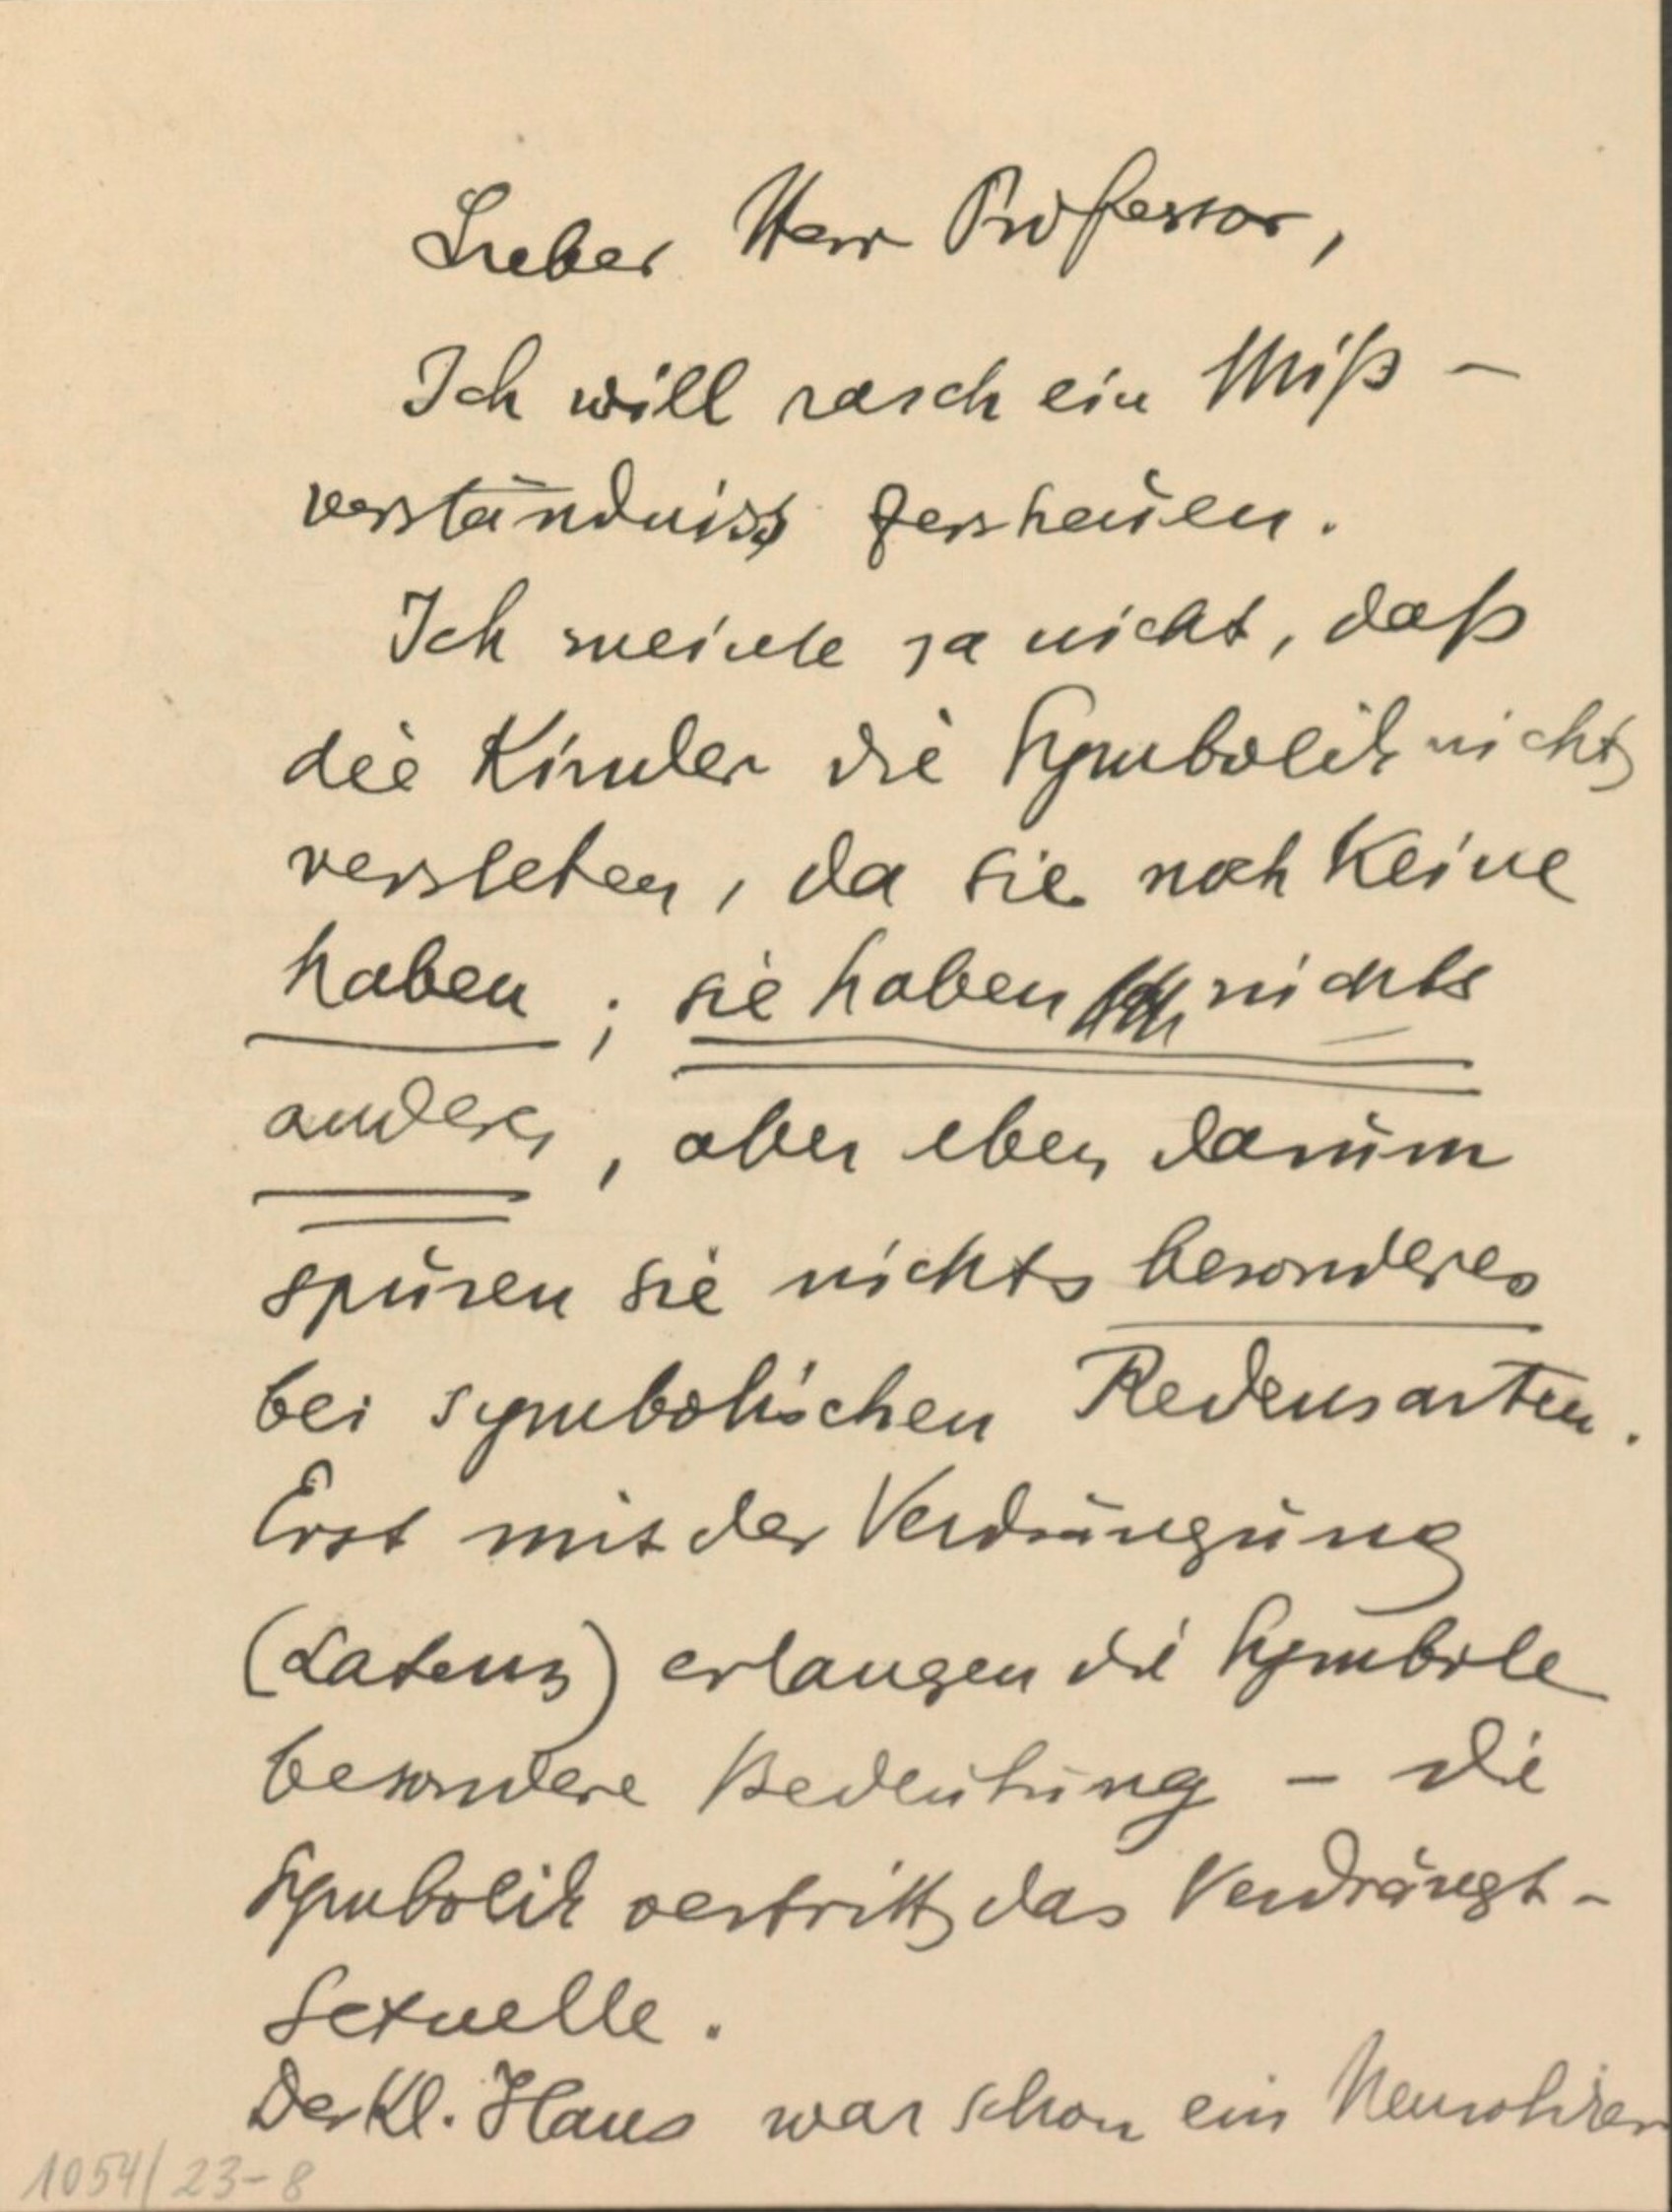 Lieber Herr Professor,
Ich will rasch ein Miß-
verständniss zerstreuen.
Ich meinte ja nicht, daß
die Kinder die Symbolik nicht
verstehen, da sie noch keine
haben; sie haben nichts
anderes, aber eben darum
spüren sie nichts besonderes
bei symbolischen Redensarten.
Erst mit der Verdrängung
(Latenz) erlangen die Symbole
besondere Bedeutung – die
Symbolik vertritt das Verdrängt-
Sexuelle.
Der kl. Hans war schon ein Neurotiker
1054/23-8